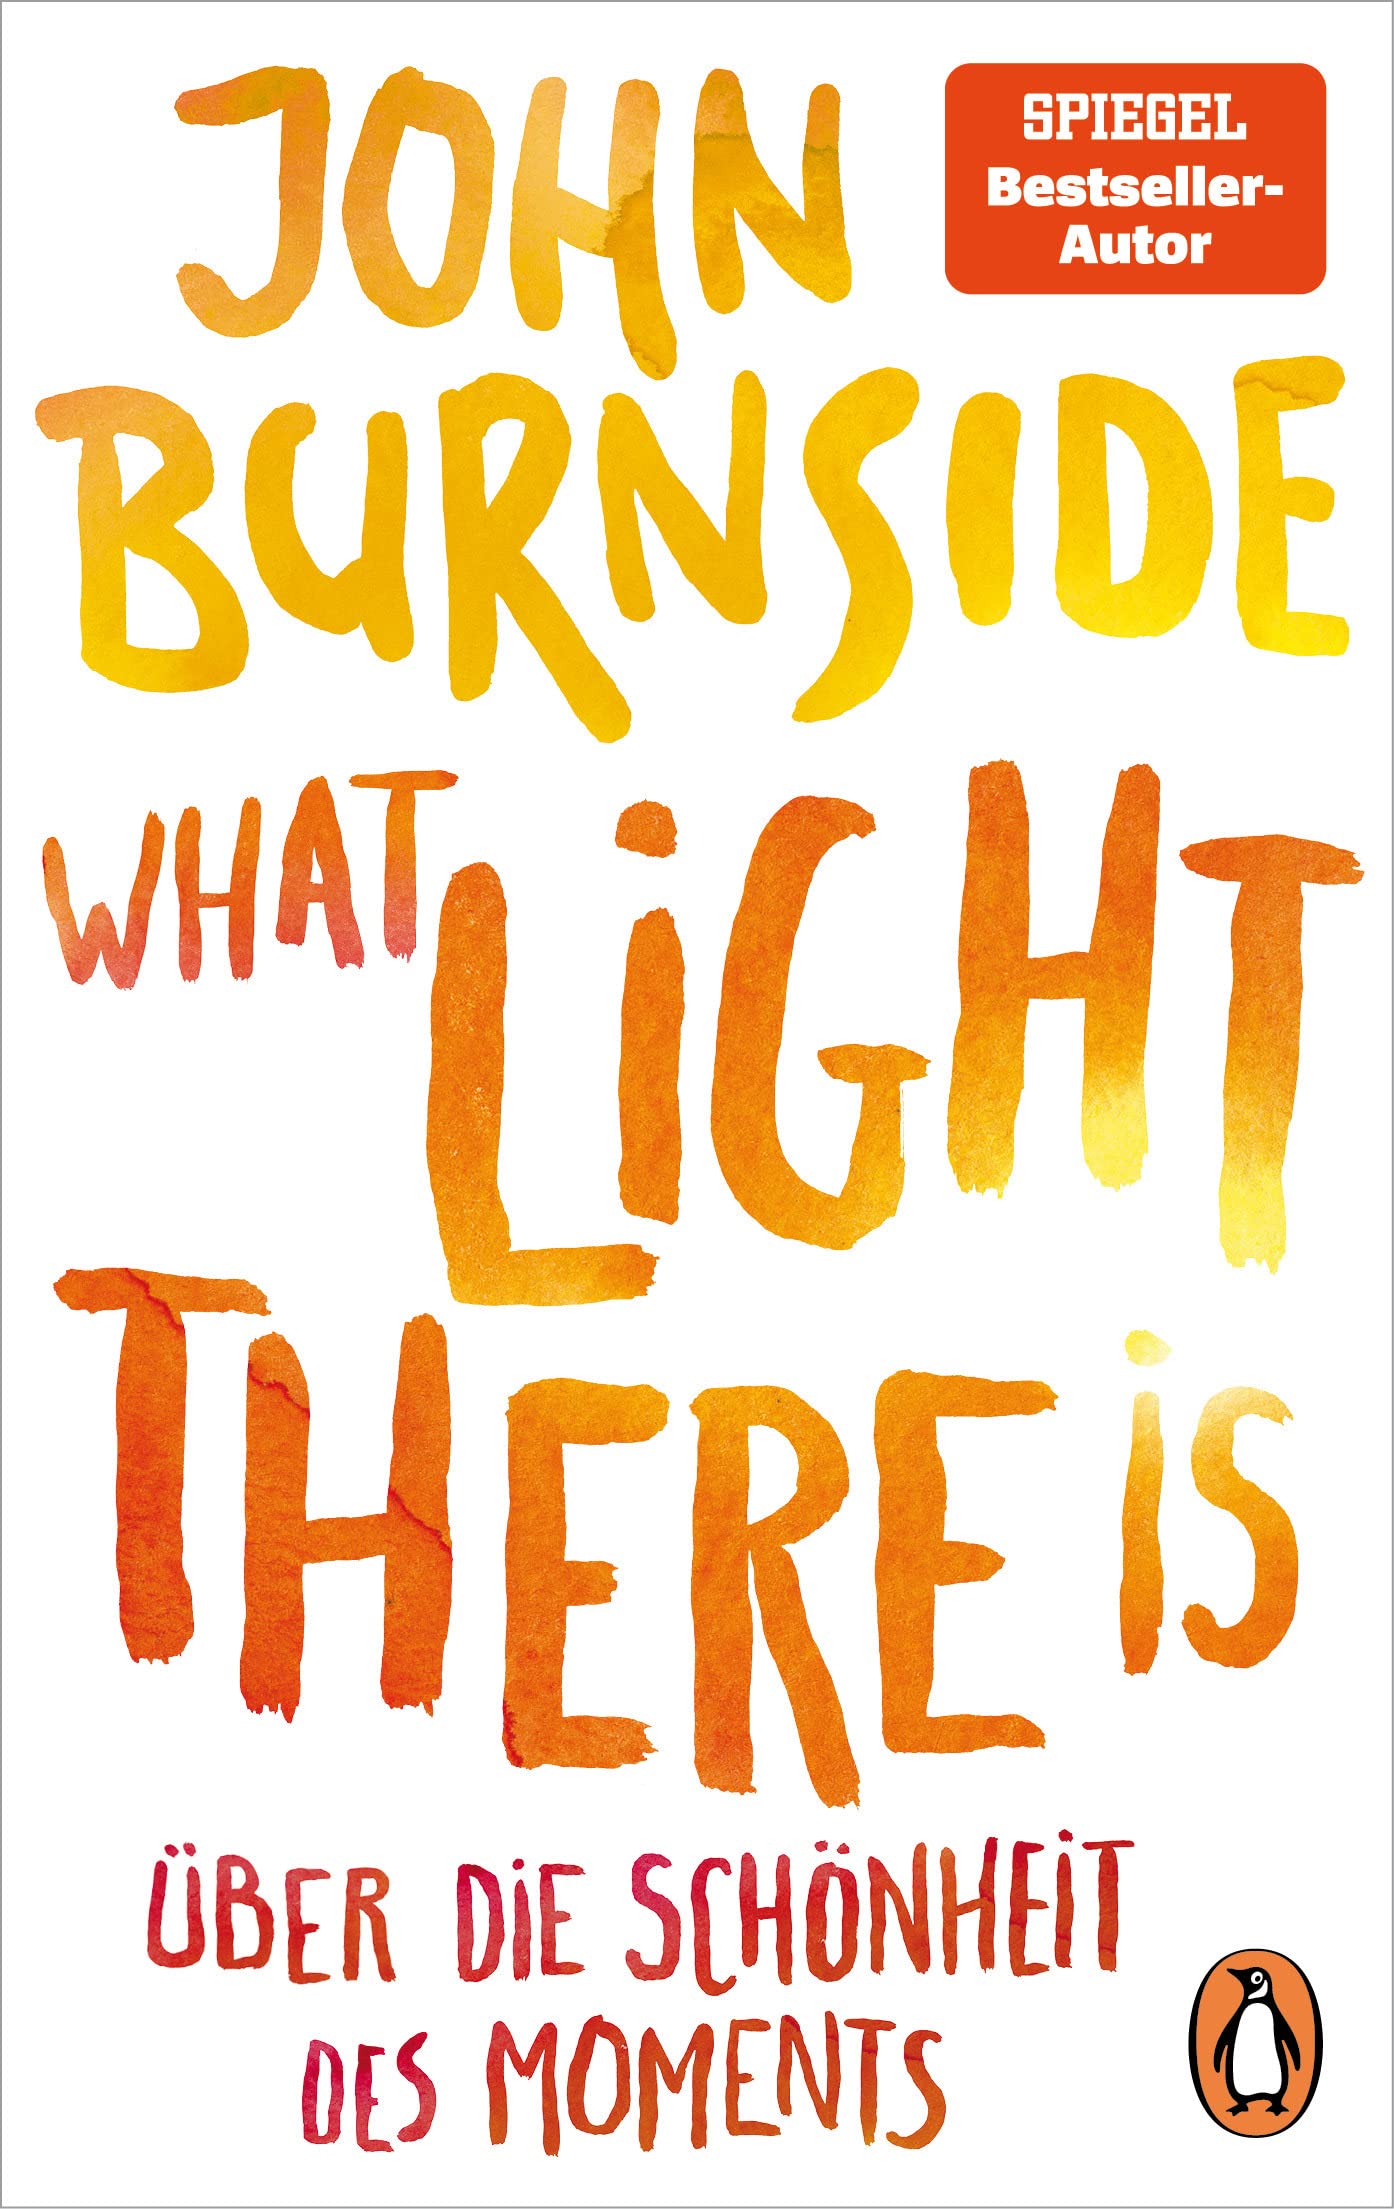 JOHN
BURNSIDE
SPIEGEL
Bestseller-
Autor
WHAT
LiGHT
THERE iS
ÜBER DiE SCHÖNHEiT
DES MOMENTS